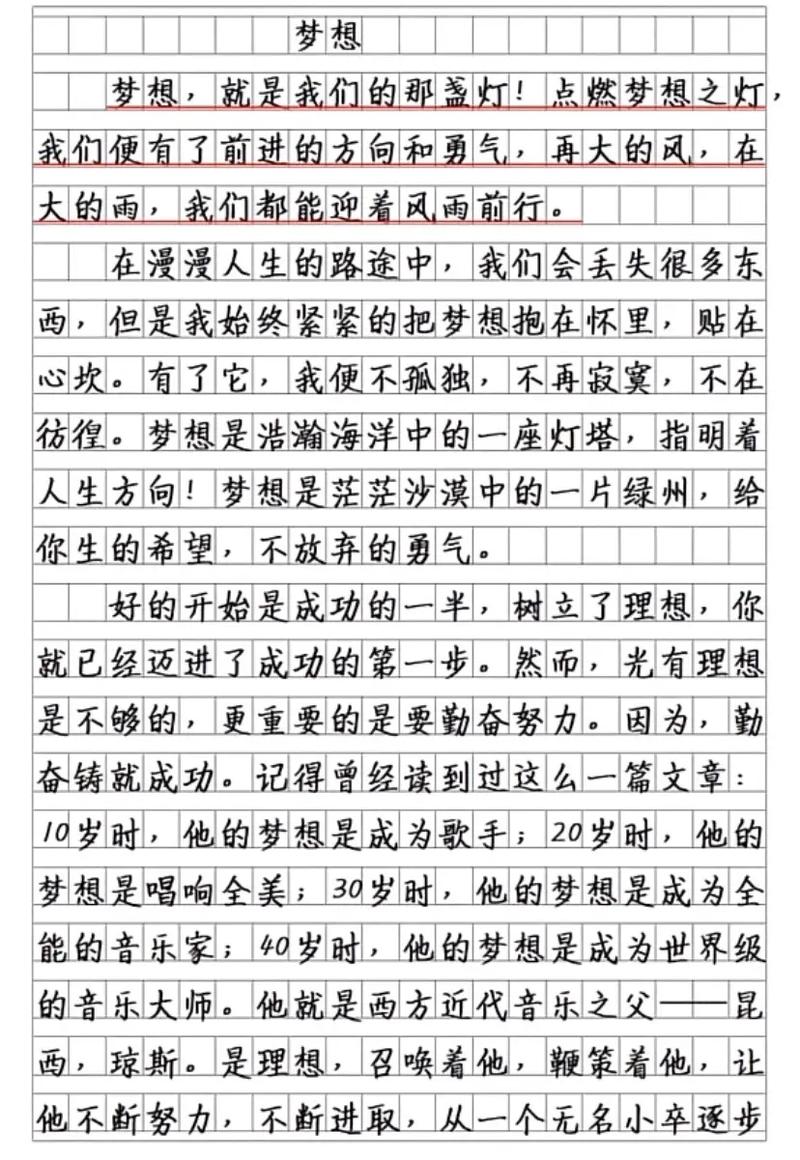 梦想
梦想，就是我们的那盏灯！点燃梦想之灯，
我们便有了前进的方向和勇气，再大的风，在
大的雨，我们都能迎着风雨前行。
在漫漫人生的路途中，我们会丢失很多东
西，但是我始终紧紧的把梦想抱在怀里，贴在
心坎。有了它，我便不孤独，不再寂寞，不在
彷徨。梦想是浩瀚海洋中的一座灯塔，指明着
人生方向！梦想是茫茫沙漠中的一片绿州，给
你生的希望，不放弃的勇气。
好的开始是成功的一半，树立了理想，你
就已经迈进了成功的第一步。然而，光有理想
是不够的，更重要的是要勤奋努力。因为，勤
奋铸就成功。记得曾经读到过这么一篇文章：
10岁时，他的梦想是成为歌手；20岁时，他的
梦想是唱响全美；30岁时，他的梦想是成为全
能的音乐家；40岁时，他的梦想是成为世界级
的音乐大师。他就是西方近代音乐之父——昆
西，琼斯。是理想，召唤着他，鞭策着他，让
他不断努力，不断进取，从一个无名小卒逐步